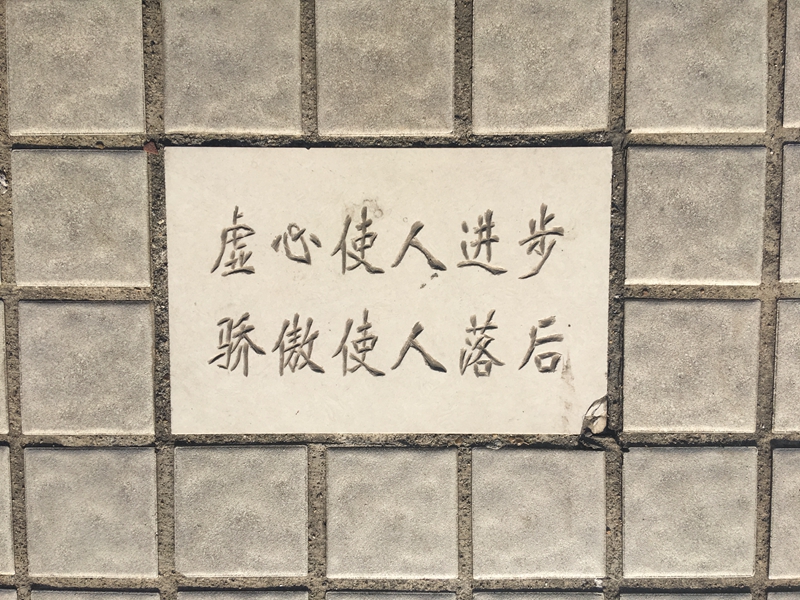 虚心使人进步
骄傲使人落后